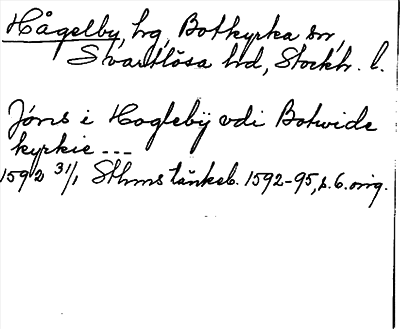 Hågelby, hg, Botkyrka sn,
Svartlösa hd, Stockh. l.
Jöns i Hogleby vdi Botwide
kyrkie ---
1592 31/1 Sthms tänkeb. 1592-95, s. 6. orig.